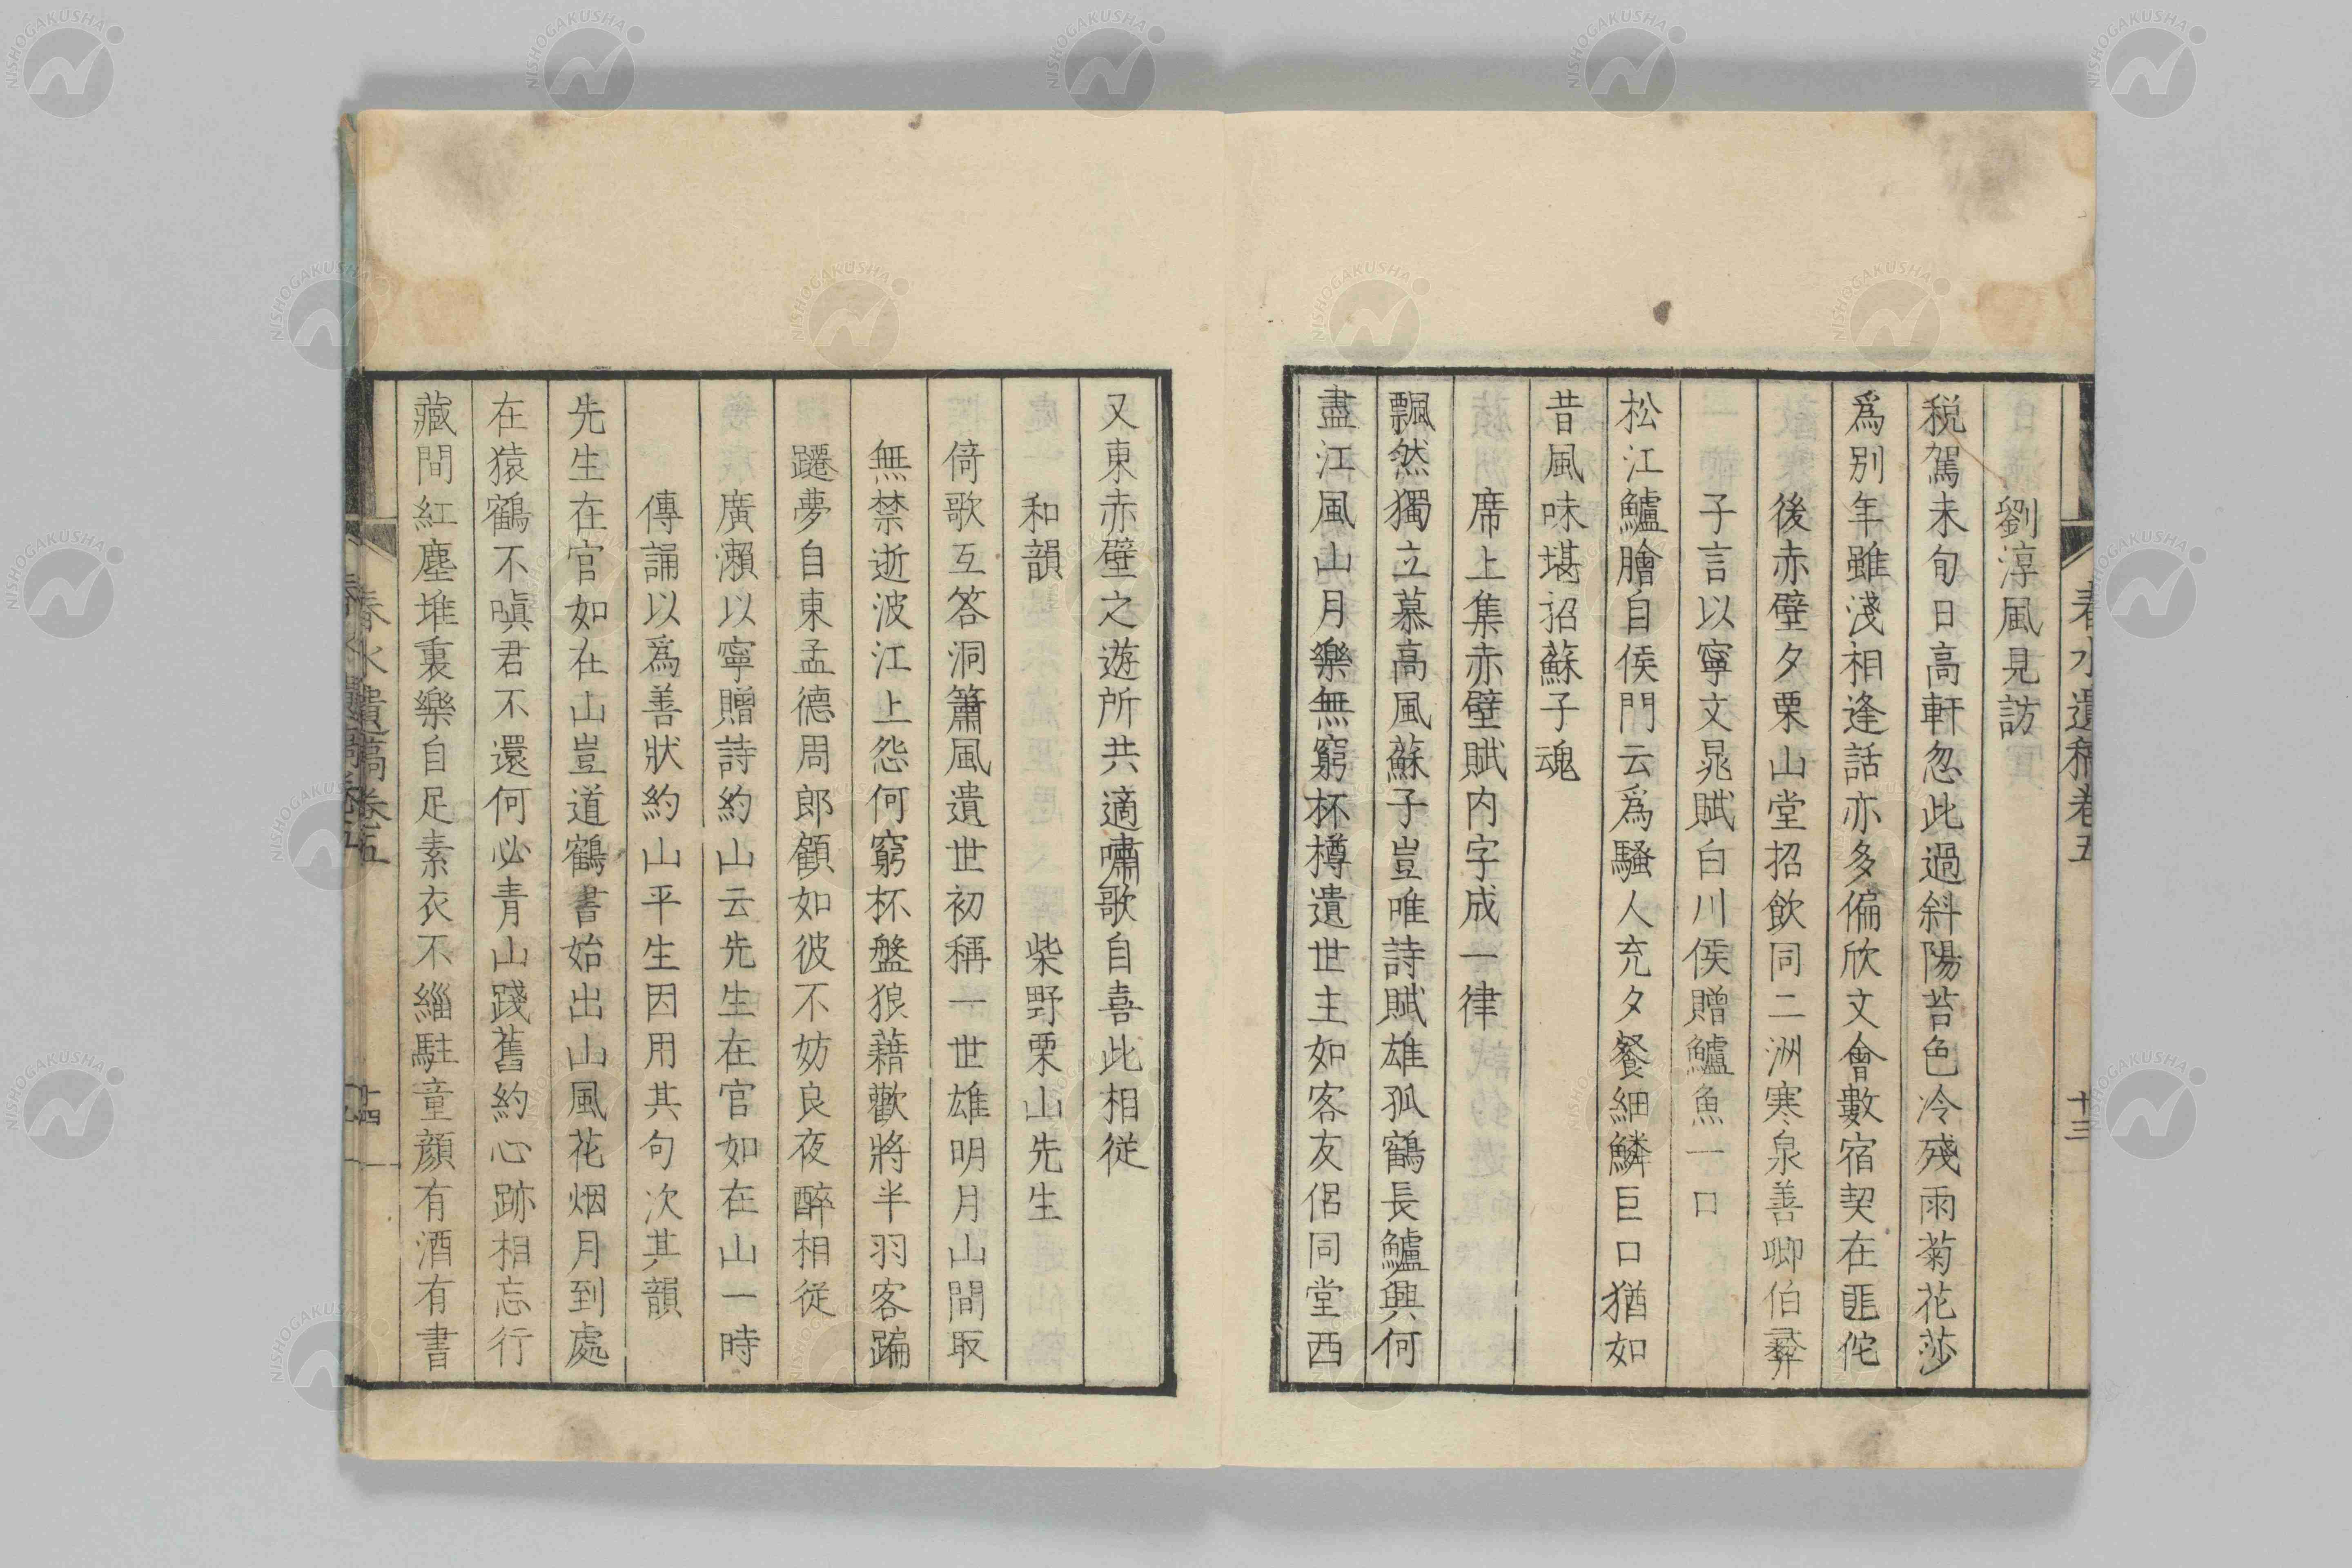 春水遺稿卷五
十三
劉淳風見訪
税駕未旬日高軒忽此過斜陽苔色冷殘雨菊花莎
爲別年雖淺相逢話亦多偏欣文會數宿契在匪佗
後赤壁夕栗山堂招飲同二洲寒泉善卿伯彝
子言以寧文晁賦白川侯贈鱸魚一口
松江鱸膾自侯門云爲騷人充夕餐細鱗巨口猶如
昔風味堪招蘇子魂
席上集赤壁賦内字成一律
飄然獨立慕高風蘇子豈唯詩賦雄孤鶴長鱸興何
盡江風山月樂無窮杯樽遺世主如客友侶同堂西
又東赤壁之遊所共適嘯歌自喜此相從
和韻 柴野栗山先生
倚歌互答洞簫風遺世初稱一世雄明月山間取
無禁逝波江上怨何窮杯盤狼藉歡將半羽客蹁
躚夢自東孟德周郎顧如彼不妨良夜醉相從
廣瀨以寧贈詩約山云先生在官如在山一時
傳誦以爲善狀約山平生因用其句次其韻
先生在官如在山豈道鶴書始出山風花烟月到處
在猿鶴不嗔君不還何必青山踐舊約心跡相忘行
藏間紅塵堆裏樂自足素衣不緇駐童顔有酒有書
春水遺稿卷五
十四
NISHOGAKUSHA